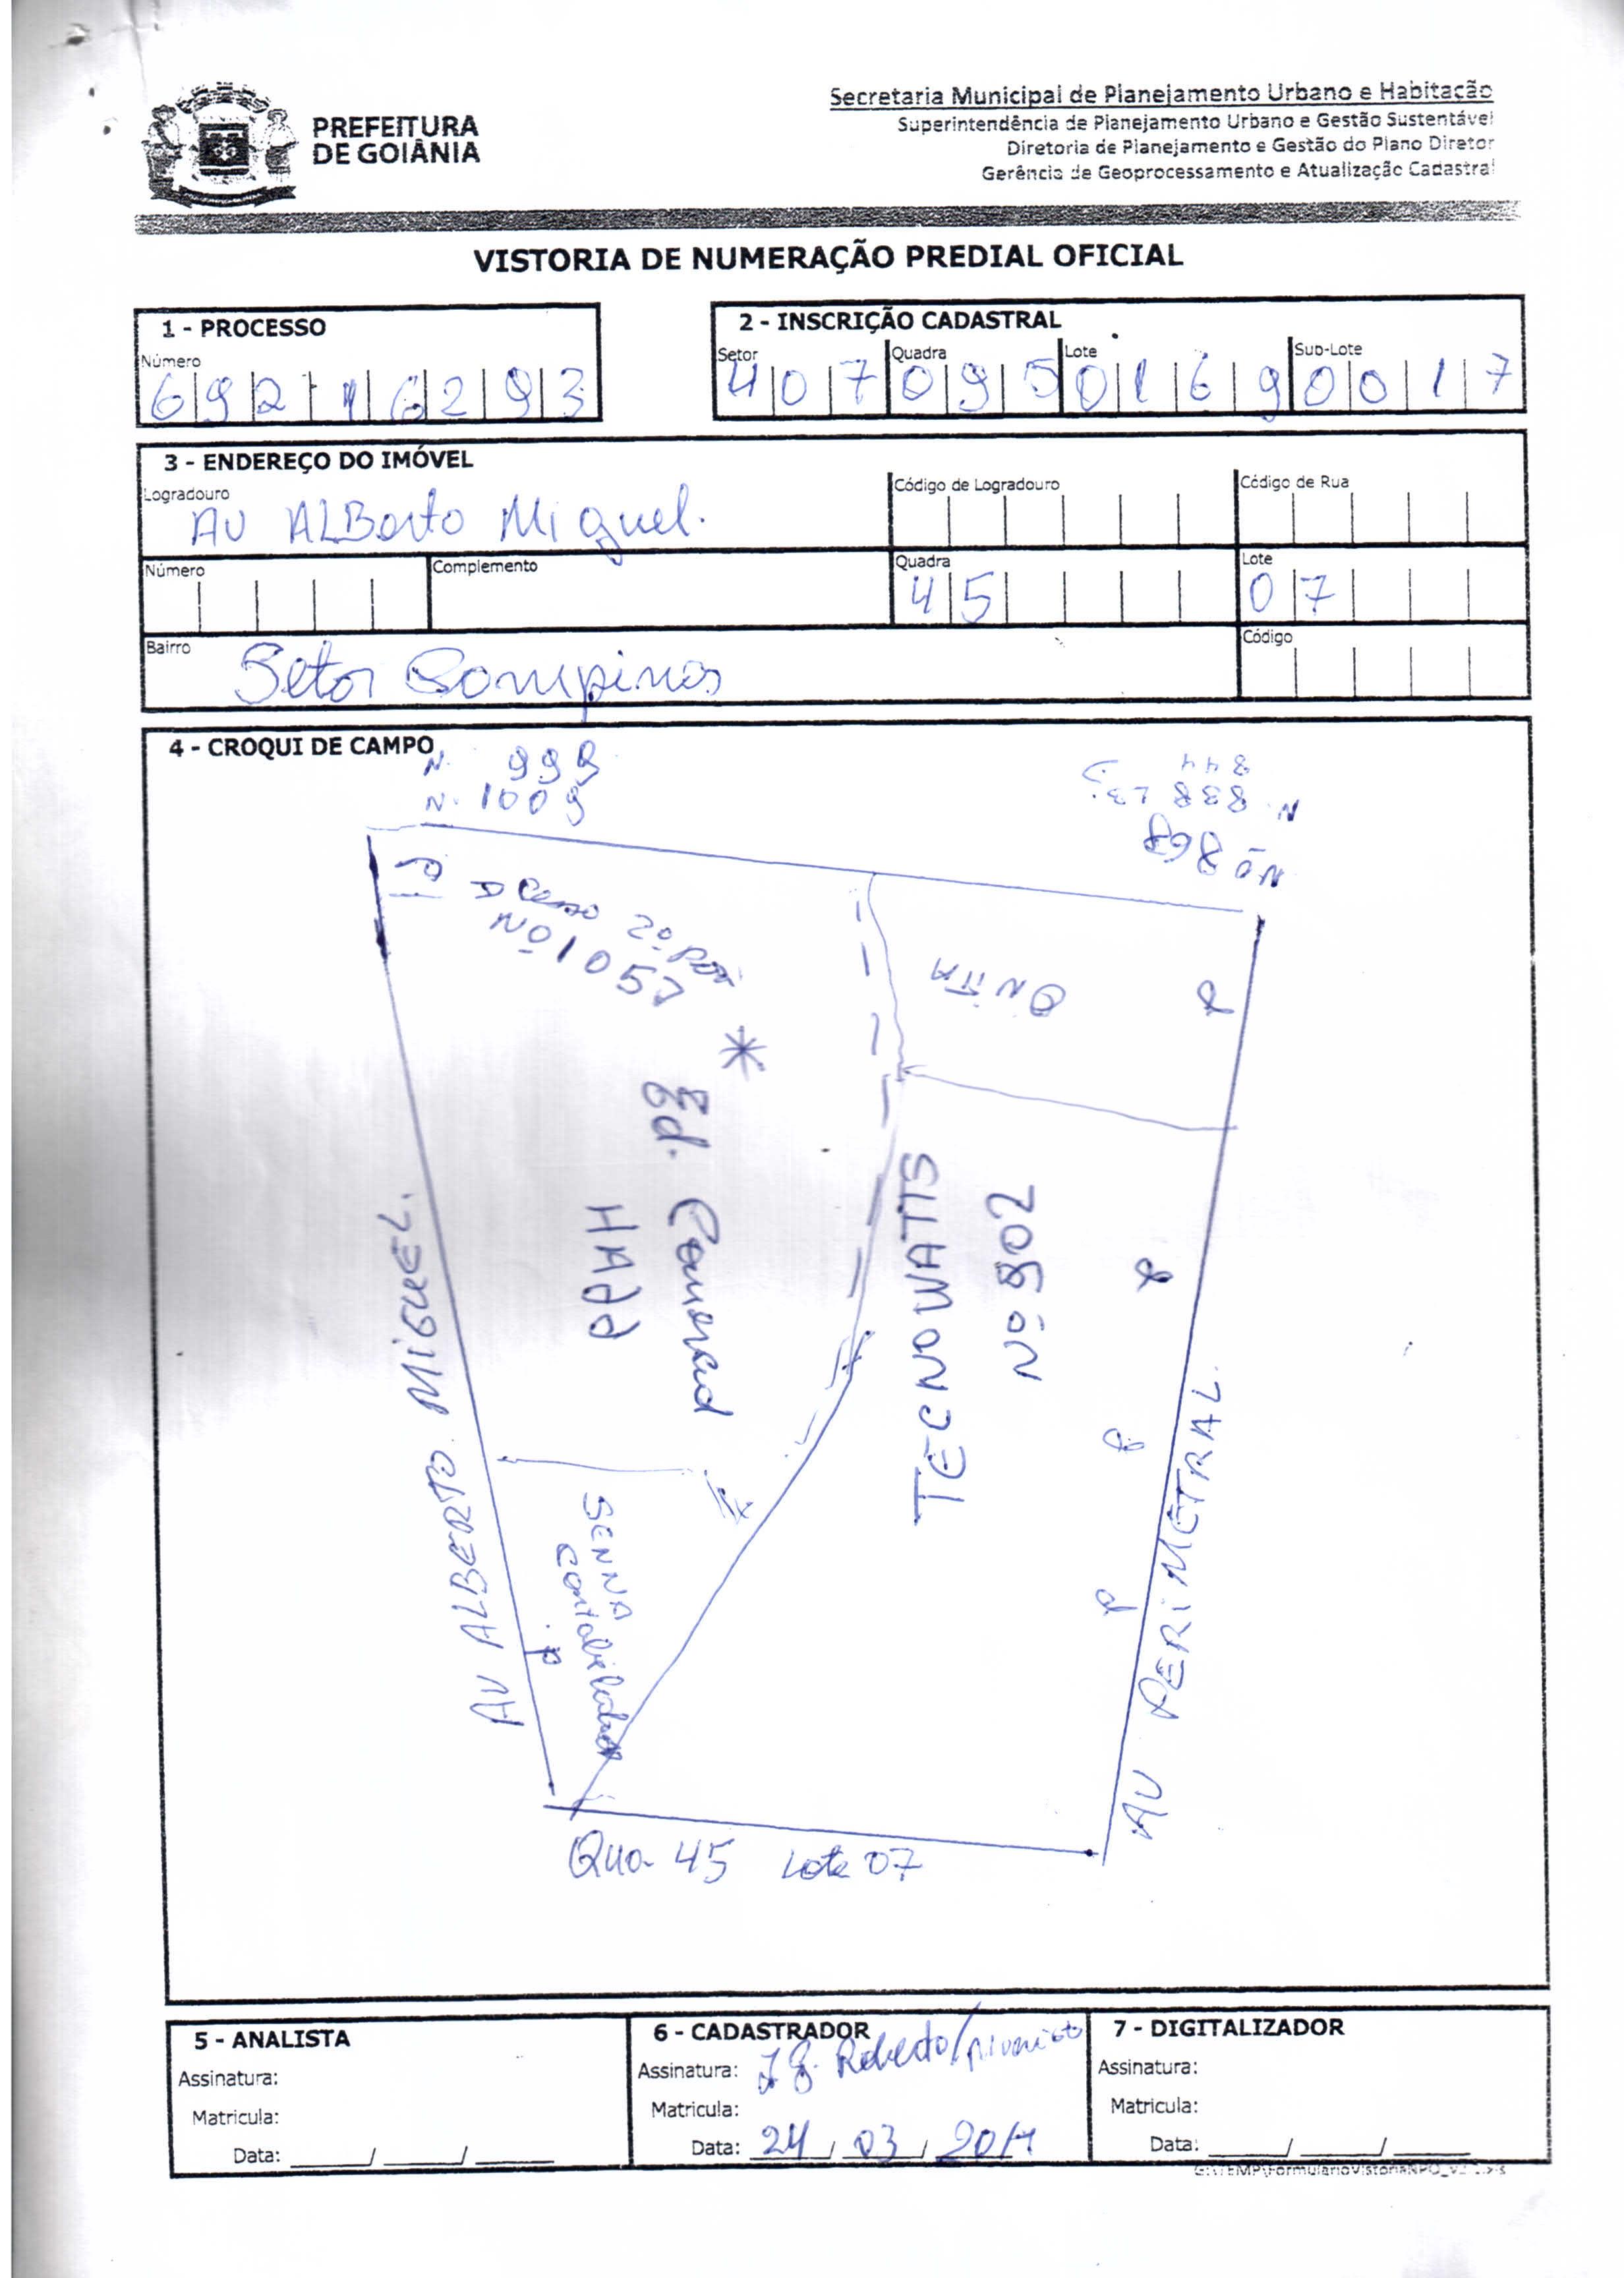 PREFEITURA
DE GOIÂNIA
Secretaria Municipal de Planejamento Urbano e Habitação
Superintendência de Planejamento Urbano e Gestão Sustentável
Diretoria de Planejamento e Gestão do Plano Diretor
Gerência de Geoprocessamento e Atualização Cadastral
VISTORIA DE NUMERAÇÃO PREDIAL OFICIAL
1 - PROCESSO
Número
692116293
2 - INSCRIÇÃO CADASTRAL
Setor Quadra Lote Sub-Lote
407 095 0169 0017
3 - ENDEREÇO DO IMÓVEL
Logradouro Código de Logradouro Código de Rua
AV ALBerto Miguel.
Número Complemento Quadra Lote
45 07
Bairro Código
Setor Campinas
4 - CROQUI DE CAMPO
N. 999
N. 1009
844
N. 838
Nº 868
Acesso 2º pav
Nº 1057
TECNOWATTS
Nº 902
AV ALBERTO MIGUEL.
SENNA
AV PERIMETRAL
Qua. 45 Lote 07
5 - ANALISTA
Assinatura:
Matricula:
Data: ____/____/____
6 - CADASTRADOR
Assinatura: Roberto
Matricula:
Data: 24/03/2017
7 - DIGITALIZADOR
Assinatura:
Matricula:
Data: ____/____/____